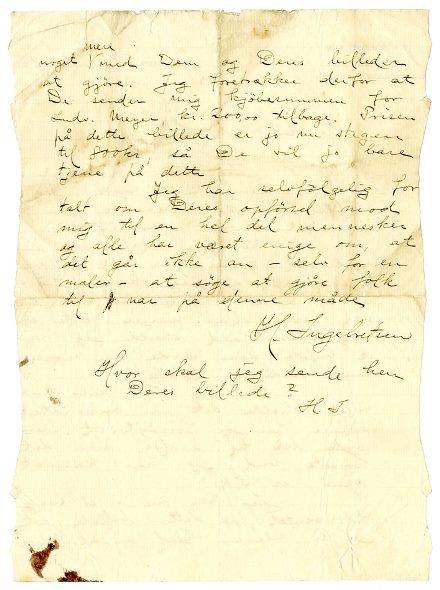 mer
noget med Dem og Deres billeder
at gjöre. Jeg foretrækker derfor at
De sender mig kjöbesummen for
Ludv. Meyer, kr. 200,00 tilbage. Prisen
på dette billede er jo nu stegen
til 800kr, så De vil jo bare
tjene på dette.
Jeg har selvfölgelig for
talt om Deres opförsel mod
mig til en hel del mennesker
og alle har været enige om, at
det går ikke an – selv for en
maler – at söge at gjöre folk
til nar på denne måde
H. Ingebretsen
Hvor skal jeg sende hen
Deres billede?
H I.